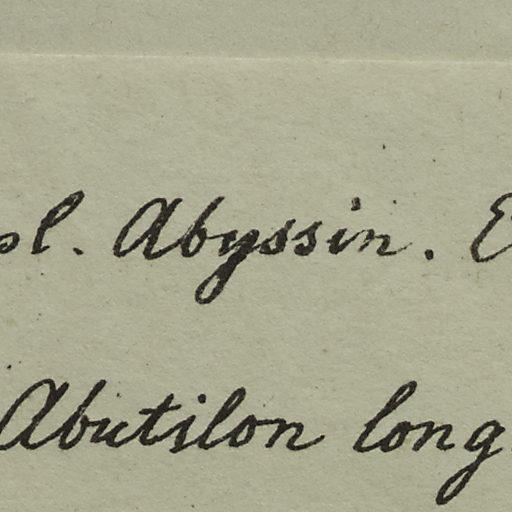 pl. Abyssin. E
Abutilon long